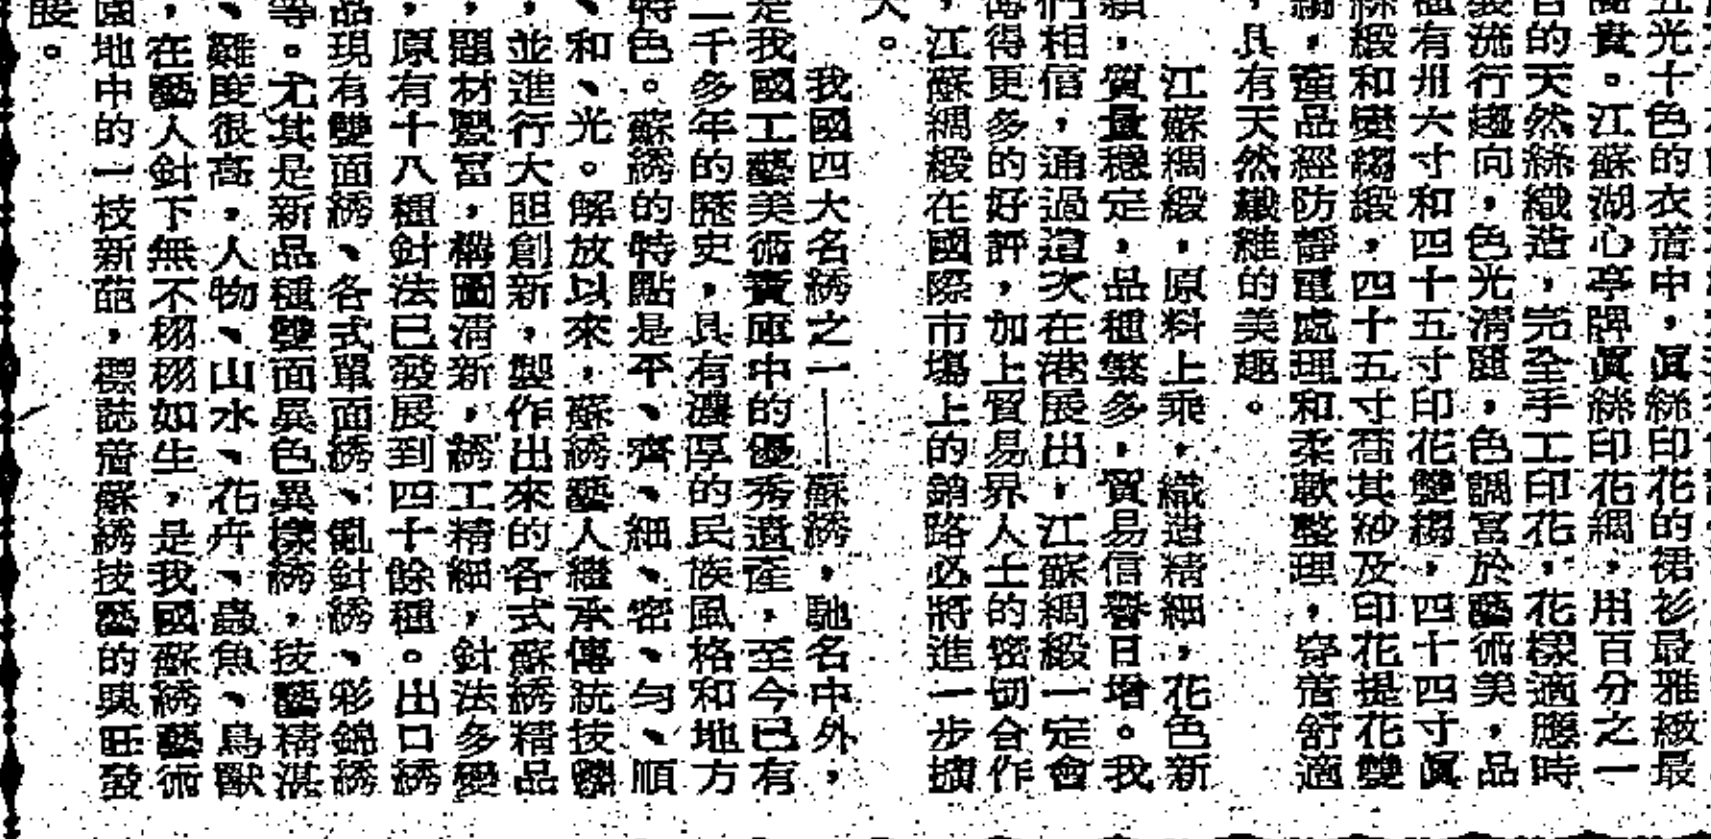 五光十色的衣着中，眞絲印花的裙衫最雅緻最
高貴。江蘇湖心亭牌眞絲印花綢，用百分之一
百的天然絲織造，完全手工印花，花樣適應時
裝流行趨向，色光清麗，色調富於藝術美，品
種有卅六寸和四十五寸印花雙縐，四十四寸眞
絲緞和雙縐緞，四十五寸喬其紗及印花提花雙
縐，產品經防靜電處理和柔軟整理，穿着舒適
，具有天然纖維的美趣。
江蘇綢緞，原料上乘，織造精細，花色新
穎，質量穩定，品種繁多，貿易信譽日增。我
們相信，通過這次在港展出，江蘇綢緞一定會
博得更多的好評，加上貿易界人士的密切合作
，江蘇綢緞在國際市場上的銷路必將進一步擴
大。
我國四大名綉之一——蘇綉，馳名中外，
是我國工藝美術寶庫中的優秀遺產，至今已有
二千多年的歷史，具有濃厚的民族風格和地方
特色。蘇綉的特點是平、齊、細、密、勻、順
、和、光。解放以來，蘇綉藝人繼承傳統技藝
，並進行大胆創新，製作出來的各式蘇綉精品
，題材豐富，構圖淸新，綉工精細，針法多變
，原有十八種針法已發展到四十餘種。出口綉
品現有雙面綉、各式單面綉、亂針綉、彩錦綉
等。尤其是新品種雙面異色異樣綉，技藝精湛
、難度很高，人物、山水、花卉、蟲魚、鳥獸
，在藝人針下無不栩栩如生，是我國蘇綉藝術
園地中的一枝新葩，標誌着蘇綉技藝的興旺發
展。